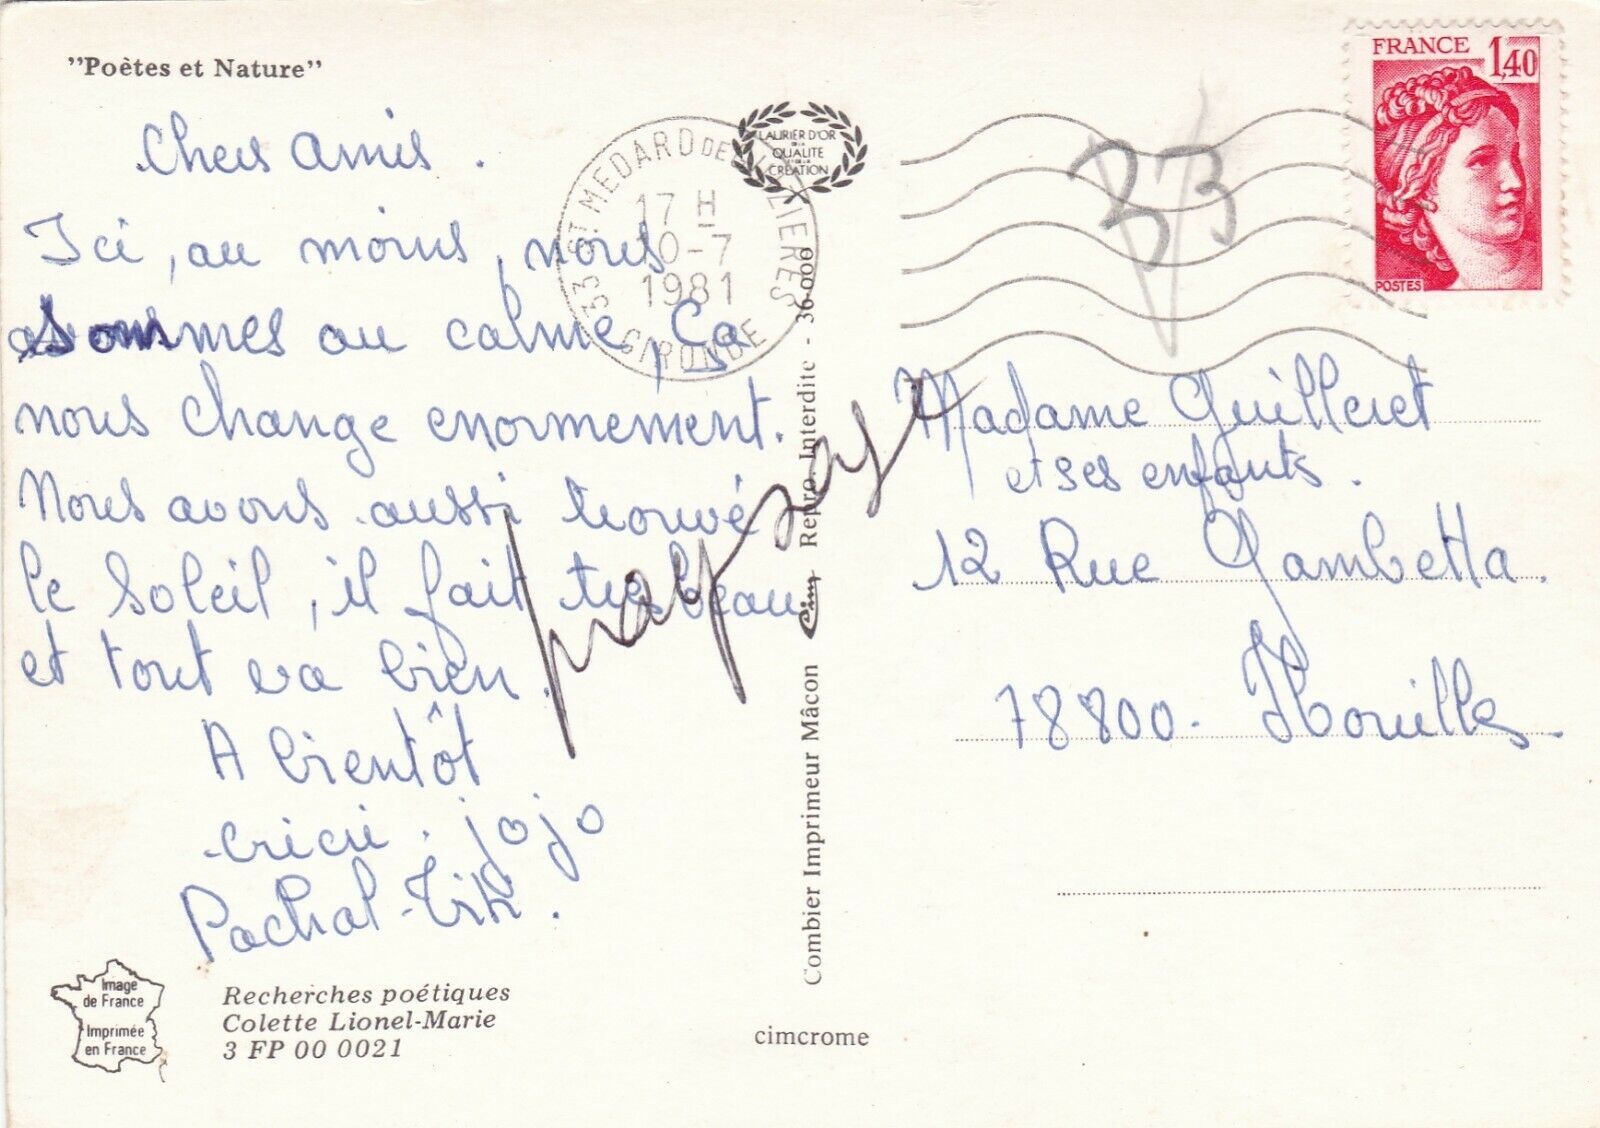 "Poètes et Nature"
Chers Amis.
Ici, au moins, nous
sommes au calme, Ça
nous change enormement.
Nous avons aussi trouvé
le Soleil, il fait tres beau
et tout va bien.
A bientôt
cricri. jojo
Pachal-Titi.
Image
de France
Imprimée
en France
Recherches poétiques
Colette Lionel-Marie
3 FP 00 0021
LAURIER D'OR
DE LA
QUALITE
ET DE LA
CREATION
33 ST MEDARD DE
17 H
10-7
1981
GIRONDE
Combier Imprimeur Mâcon Cim Repro. Interdite - 36 000
cimcrome
33
FRANCE
1,40
POSTES
Madame Guilleret
et ses enfants.
12 Rue Gambetta.
78800. Houilles